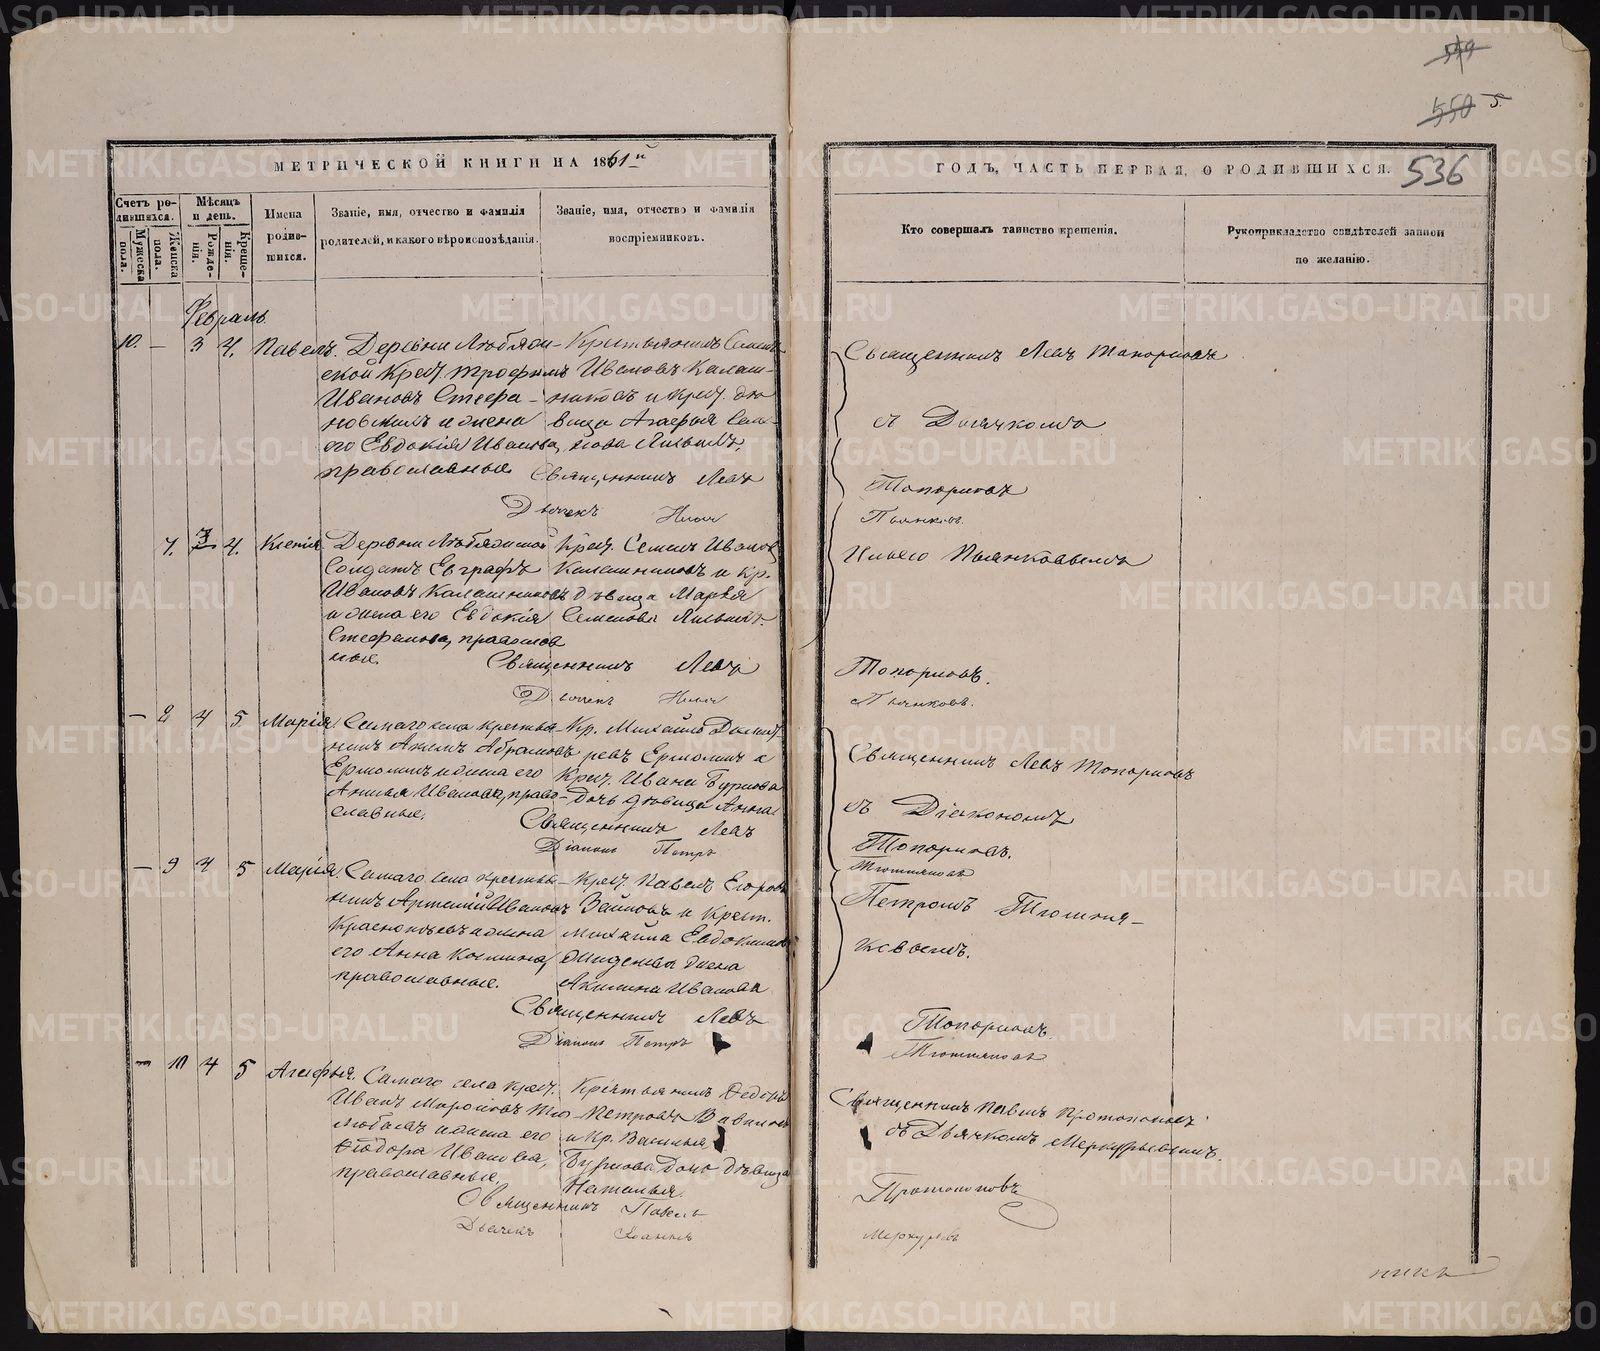 549
550
5
МЕТРИЧЕСКОЙ КНИГИ НА 1861 й
ГОДЪ, ЧАСТЬ ПЕРВАЯ, О РОДИВШИХСЯ.
536
Счетъ родившихся.
Мужеска пола.
Женска пола.
Мѣсяцъ и день.
Рожденія.
Крещенія.
Имена родившихся.
Званіе, имя, отчество и фамилія
родителей, и какого вѣроисповѣданія.
Званіе, имя, отчество и фамилія
воспріемниковъ.
Кто совершалъ таинство крещенія.
Рукоприкладство свидѣтелей записи
по желанію.
Февраль
10. — 3 4. Павелъ.
Деревни
ской Крест. Трофимъ
Ивановъ Стефа-
новскихъ и жена
его Евдокія Иванова,
православные.
Крестьянинъ Семенъ
Ивановъ Калаш-
никовъ и Крест. дѣ-
вица Агафья Семе-
нова
Священникъ Левъ Топорковъ
съ Дьячкомъ
Священникъ Левъ Топорковъ
Дьячекъ Илья Пьянковъ.
7. 3 4. Ксенія
Деревни
Солдатъ Евграфъ
Ивановъ Калашниковъ
и жена его Евдокія
Стефанова, православ
ные.
Крест. Семенъ Иванов
Калашниковъ и Кр.
дѣвица Марья
Семенова
Ильею Пьянковымъ
Священникъ Левъ Топорковъ.
Дьячекъ Илья Пьянковъ.
— 8 4 5 Марія
Самаго села крестья-
нинъ Акимъ Абрамовъ
Ермолинъ и жена его
Ивановa, право-
славные.
Кр. Михайло Дмит-
ревъ Ермолинъ и
Крест. Ивана Буркова
Дочь дѣвица Анна
Священникъ Левъ Топорковъ
съ Діакономъ
Священникъ Левъ Топорковъ.
Діаконъ Петръ
— 9 4 5 Марія.
Самаго села крестья-
нинъ Артемій Ивановъ
и жена
его Анна Козмина,
православные.
Крест. Павелъ Егоровъ
и Крест.
Михайла Евдокимов
жена
Акилина Иванова
Петромъ
Священникъ Левъ Топорковъ.
Діаконъ Петръ
— 10 4 5 Агафья.
Самаго села крест.
Иванъ Мироновъ
и жена его
Ѳеодора Иванова,
православные.
Крестьянинъ Ѳедоръ
Петровъ
и Кр. Василья
Буркова Дочь дѣвица
Наталья.
Священникъ Павелъ Протопоповъ
съ Дьячкомъ Меркурьевымъ.
Священникъ Павелъ Протопоповъ
Дьячекъ Іоаннъ Меркурьевъ
METRIKI.GASO-URAL.RU